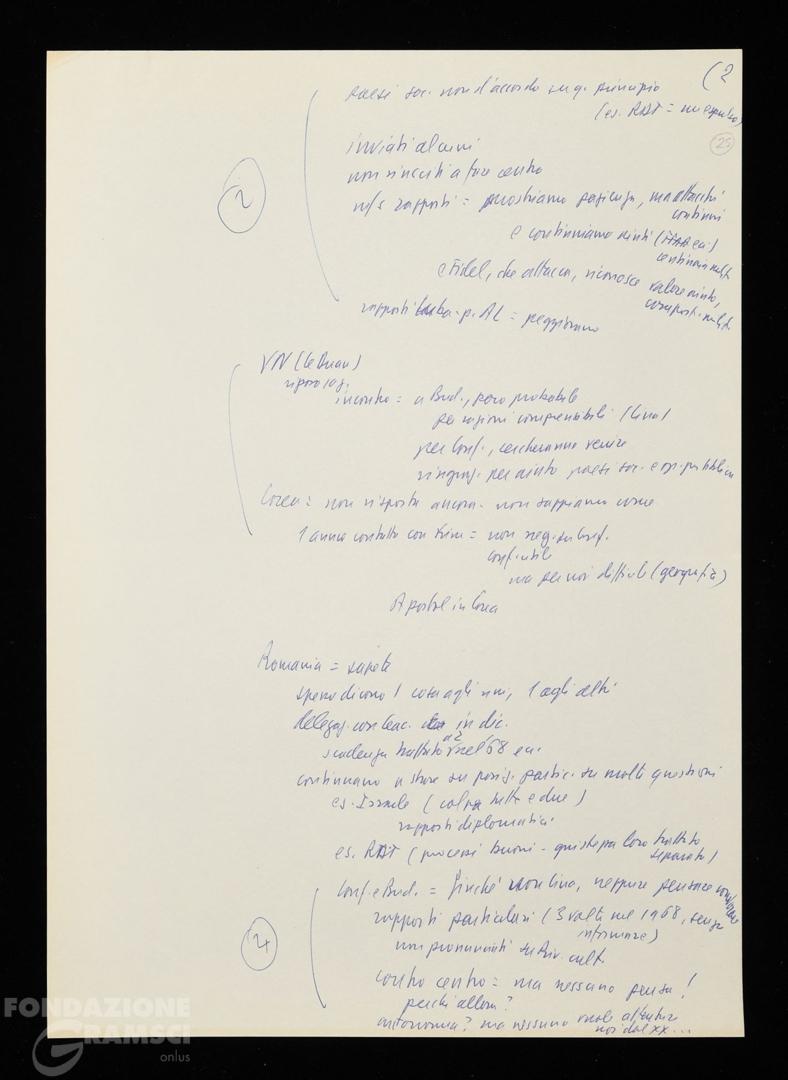 (2
paesi soc. non d'accordo su q. principio
(es. RDT =
25
inviati alcuni
non riusciti a fare centro
2
ns/ rapporti = mostriamo pazienza, ma attacchi
continui
e continuiamo aiuti (
e Fidel, che attacca, riconosce valore aiuto,
rapporti Cuba - p. AL = peggiorano
VN (Le Duan)
incontro = a Bud., poco probabile
per ragioni comprensibili (Cina)
per Conf., cercheranno venire
ringraz. per aiuto paesi soc. e op. pubblica
Corea = non risposta ancora - non sappiamo come
1 anno contatto con Kim = non neg. su Conf.
conf. utile
ma per noi difficile (geografia)
Apostol in Corea
Romania = sapete
spesso dicono 1 cosa agli uni, 1 agli altri
delegaz. con Ceac. in dic.
scadenza trattato a 2 nel '68 ecc.
continuano a stare su posiz. partic. su molte questioni
es. Israele (colpa tutte e due)
rapporti diplomatici
es. RDT (processi buoni - guasta loro trattato
separato)
Conf. e Bud. = finché non Cina, neppure pensare
rapporti particolari (3 volte nel 1968, senza
informare)
non pronunciati su riv. cult.
4
contro centro = ma nessuno pensa!
perché allora?
autonomia? ma nessuno vuole attentare
noi dal XX...
FONDAZIONE
GRAMSCI
onlus